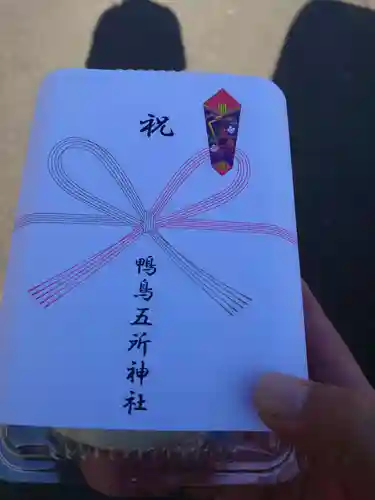 祝
鴨鳥五所神社